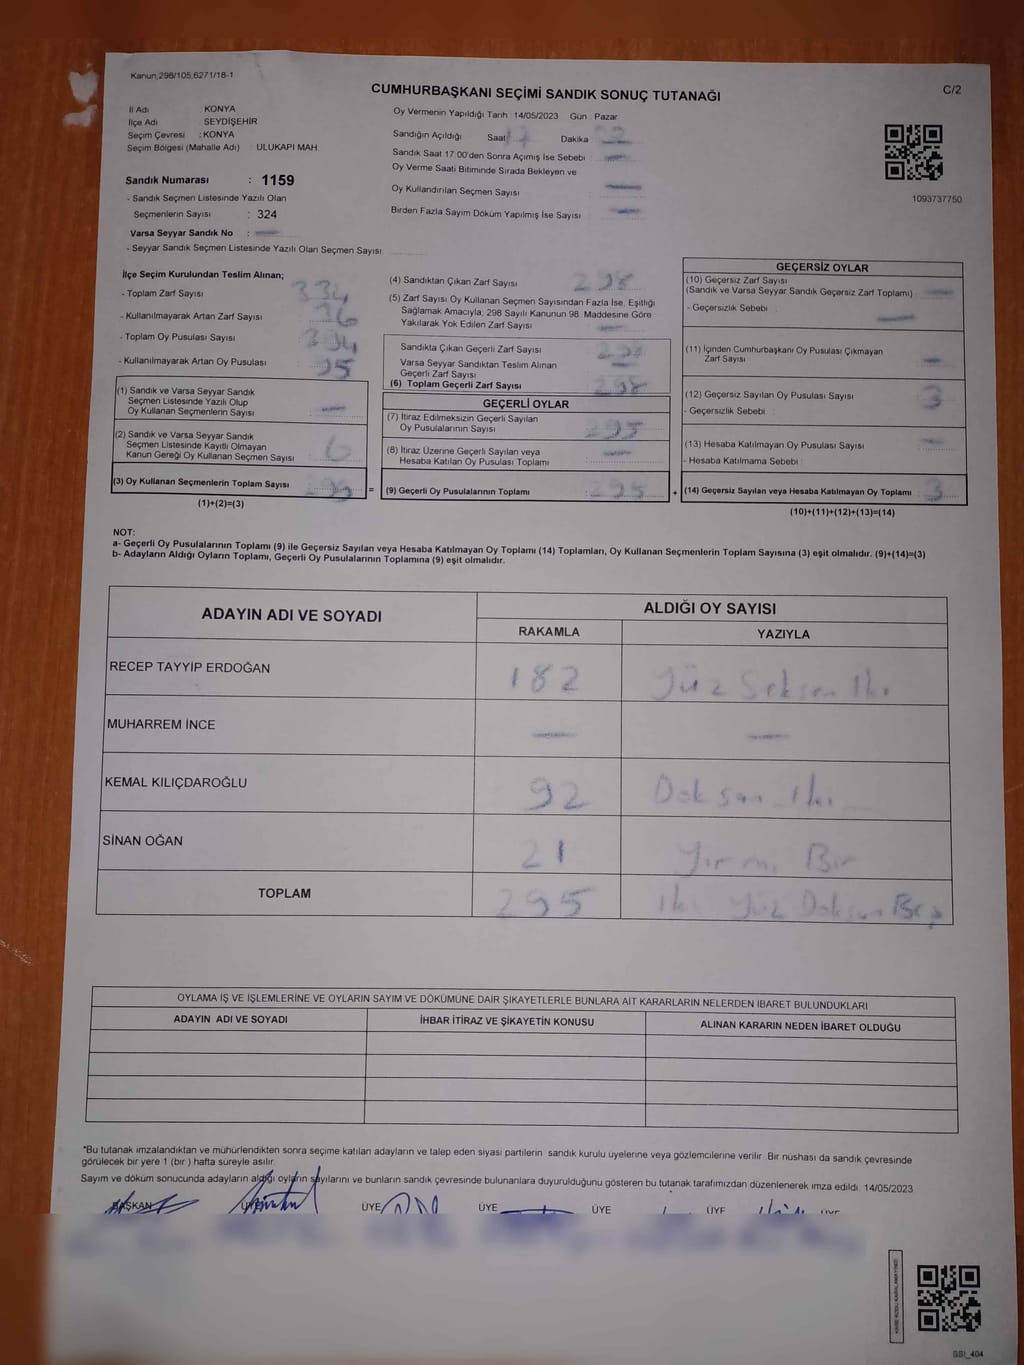 Kanun;298/105;6271/18-1
CUMHURBAŞKANI SEÇİMİ SANDIK SONUÇ TUTANAĞI
C/2
İl Adı : KONYA
İlçe Adı : SEYDİŞEHİR
Seçim Çevresi : KONYA
Seçim Bölgesi (Mahalle Adı) : ULUKAPI MAH.
Sandık Numarası : 1159
- Sandık Seçmen Listesinde Yazılı Olan
Seçmenlerin Sayısı : 324
Varsa Seyyar Sandık No : —
- Seyyar Sandık Seçmen Listesinde Yazılı Olan Seçmen Sayısı:
Oy Vermenin Yapıldığı Tarih 14/05/2023 Gün Pazar
Sandığın Açıldığı Saat 17 Dakika
Sandık Saat 17:00'den Sonra Açımış İse Sebebi : —
Oy Verme Saati Bitiminde Sırada Bekleyen ve
Oy Kullandırılan Seçmen Sayısı : —
Birden Fazla Sayım Döküm Yapılmış İse Sayısı : —
1093737750
İlçe Seçim Kurulundan Teslim Alınan;
- Toplam Zarf Sayısı : 334
- Kullanılmayarak Artan Zarf Sayısı : 36
- Toplam Oy Pusulası Sayısı : 334
- Kullanılmayarak Artan Oy Pusulası : 35
(1) Sandık ve Varsa Seyyar Sandık
Seçmen Listesinde Yazılı Olup
Oy Kullanan Seçmenlerin Sayısı : —
(2) Sandık ve Varsa Seyyar Sandık
Seçmen Listesinde Kayıtlı Olmayan
Kanun Gereği Oy Kullanan Seçmen Sayısı : 6
(3) Oy Kullanan Seçmenlerin Toplam Sayısı :
(1)+(2)=(3)
(4) Sandıktan Çıkan Zarf Sayısı : 298
(5) Zarf Sayısı Oy Kullanan Seçmen Sayısından Fazla İse, Eşitliği
Sağlamak Amacıyla, 298 Sayılı Kanunun 98. Maddesine Göre
Yakılarak Yok Edilen Zarf Sayısı : —
Sandıkta Çıkan Geçerli Zarf Sayısı : 298
Varsa Seyyar Sandıktan Teslim Alınan
Geçerli Zarf Sayısı : —
(6) Toplam Geçerli Zarf Sayısı : 298
GEÇERLİ OYLAR
(7) İtiraz Edilmeksizin Geçerli Sayılan
Oy Pusulalarının Sayısı : 295
(8) İtiraz Üzerine Geçerli Sayılan veya
Hesaba Katılan Oy Pusulası Toplamı : —
= (9) Geçerli Oy Pusulalarının Toplamı : 295
GEÇERSİZ OYLAR
(10) Geçersiz Zarf Sayısı
(Sandık ve Varsa Seyyar Sandık Geçersiz Zarf Toplamı) : —
- Geçersizlik Sebebi : —
(11) İçinden Cumhurbaşkanı Oy Pusulası Çıkmayan
Zarf Sayısı : —
(12) Geçersiz Sayılan Oy Pusulası Sayısı : 3
- Geçersizlik Sebebi :
(13) Hesaba Katılmayan Oy Pusulası Sayısı : —
- Hesaba Katılmama Sebebi :
+ (14) Geçersiz Sayılan veya Hesaba Katılmayan Oy Toplamı : 3
(10)+(11)+(12)+(13)=(14)
NOT:
a- Geçerli Oy Pusulalarının Toplamı (9) ile Geçersiz Sayılan veya Hesaba Katılmayan Oy Toplamı (14) Toplamları, Oy Kullanan Seçmenlerin Toplam Sayısına (3) eşit olmalıdır. (9)+(14)=(3)
b- Adayların Aldığı Oyların Toplamı, Geçerli Oy Pusulalarının Toplamına (9) eşit olmalıdır.
ADAYIN ADI VE SOYADI
ALDIĞI OY SAYISI
RAKAMLA YAZIYLA
RECEP TAYYİP ERDOĞAN 182 Yüz Seksen İki
MUHARREM İNCE — —
KEMAL KILIÇDAROĞLU 92 Doksan İki
SİNAN OĞAN 21 Yirmi Bir
TOPLAM 295 İki Yüz Doksan Beş
OYLAMA İŞ VE İŞLEMLERİNE VE OYLARIN SAYIM VE DÖKÜMÜNE DAİR ŞİKAYETLERLE BUNLARA AİT KARARLARIN NELERDEN İBARET BULUNDUKLARI
ADAYIN ADI VE SOYADI İHBAR İTİRAZ VE ŞİKAYETİN KONUSU ALINAN KARARIN NEDEN İBARET OLDUĞU
*Bu tutanak imzalandıktan ve mühürlendikten sonra seçime katılan adayların ve talep eden siyasi partilerin sandık kurulu üyelerine veya gözlemcilerine verilir. Bir nüshası da sandık çevresinde
görülecek bir yere 1 (bir) hafta süreyle asılır.
Sayım ve döküm sonucunda adayların aldığı oyların sayılarını ve bunların sandık çevresinde bulunanlara duyurulduğunu gösteren bu tutanak tarafımızdan düzenlenerek imza edildi. 14/05/2023
BAŞKAN ÜYE ÜYE ÜYE ÜYE ÜYE ÜYE
SBI_404